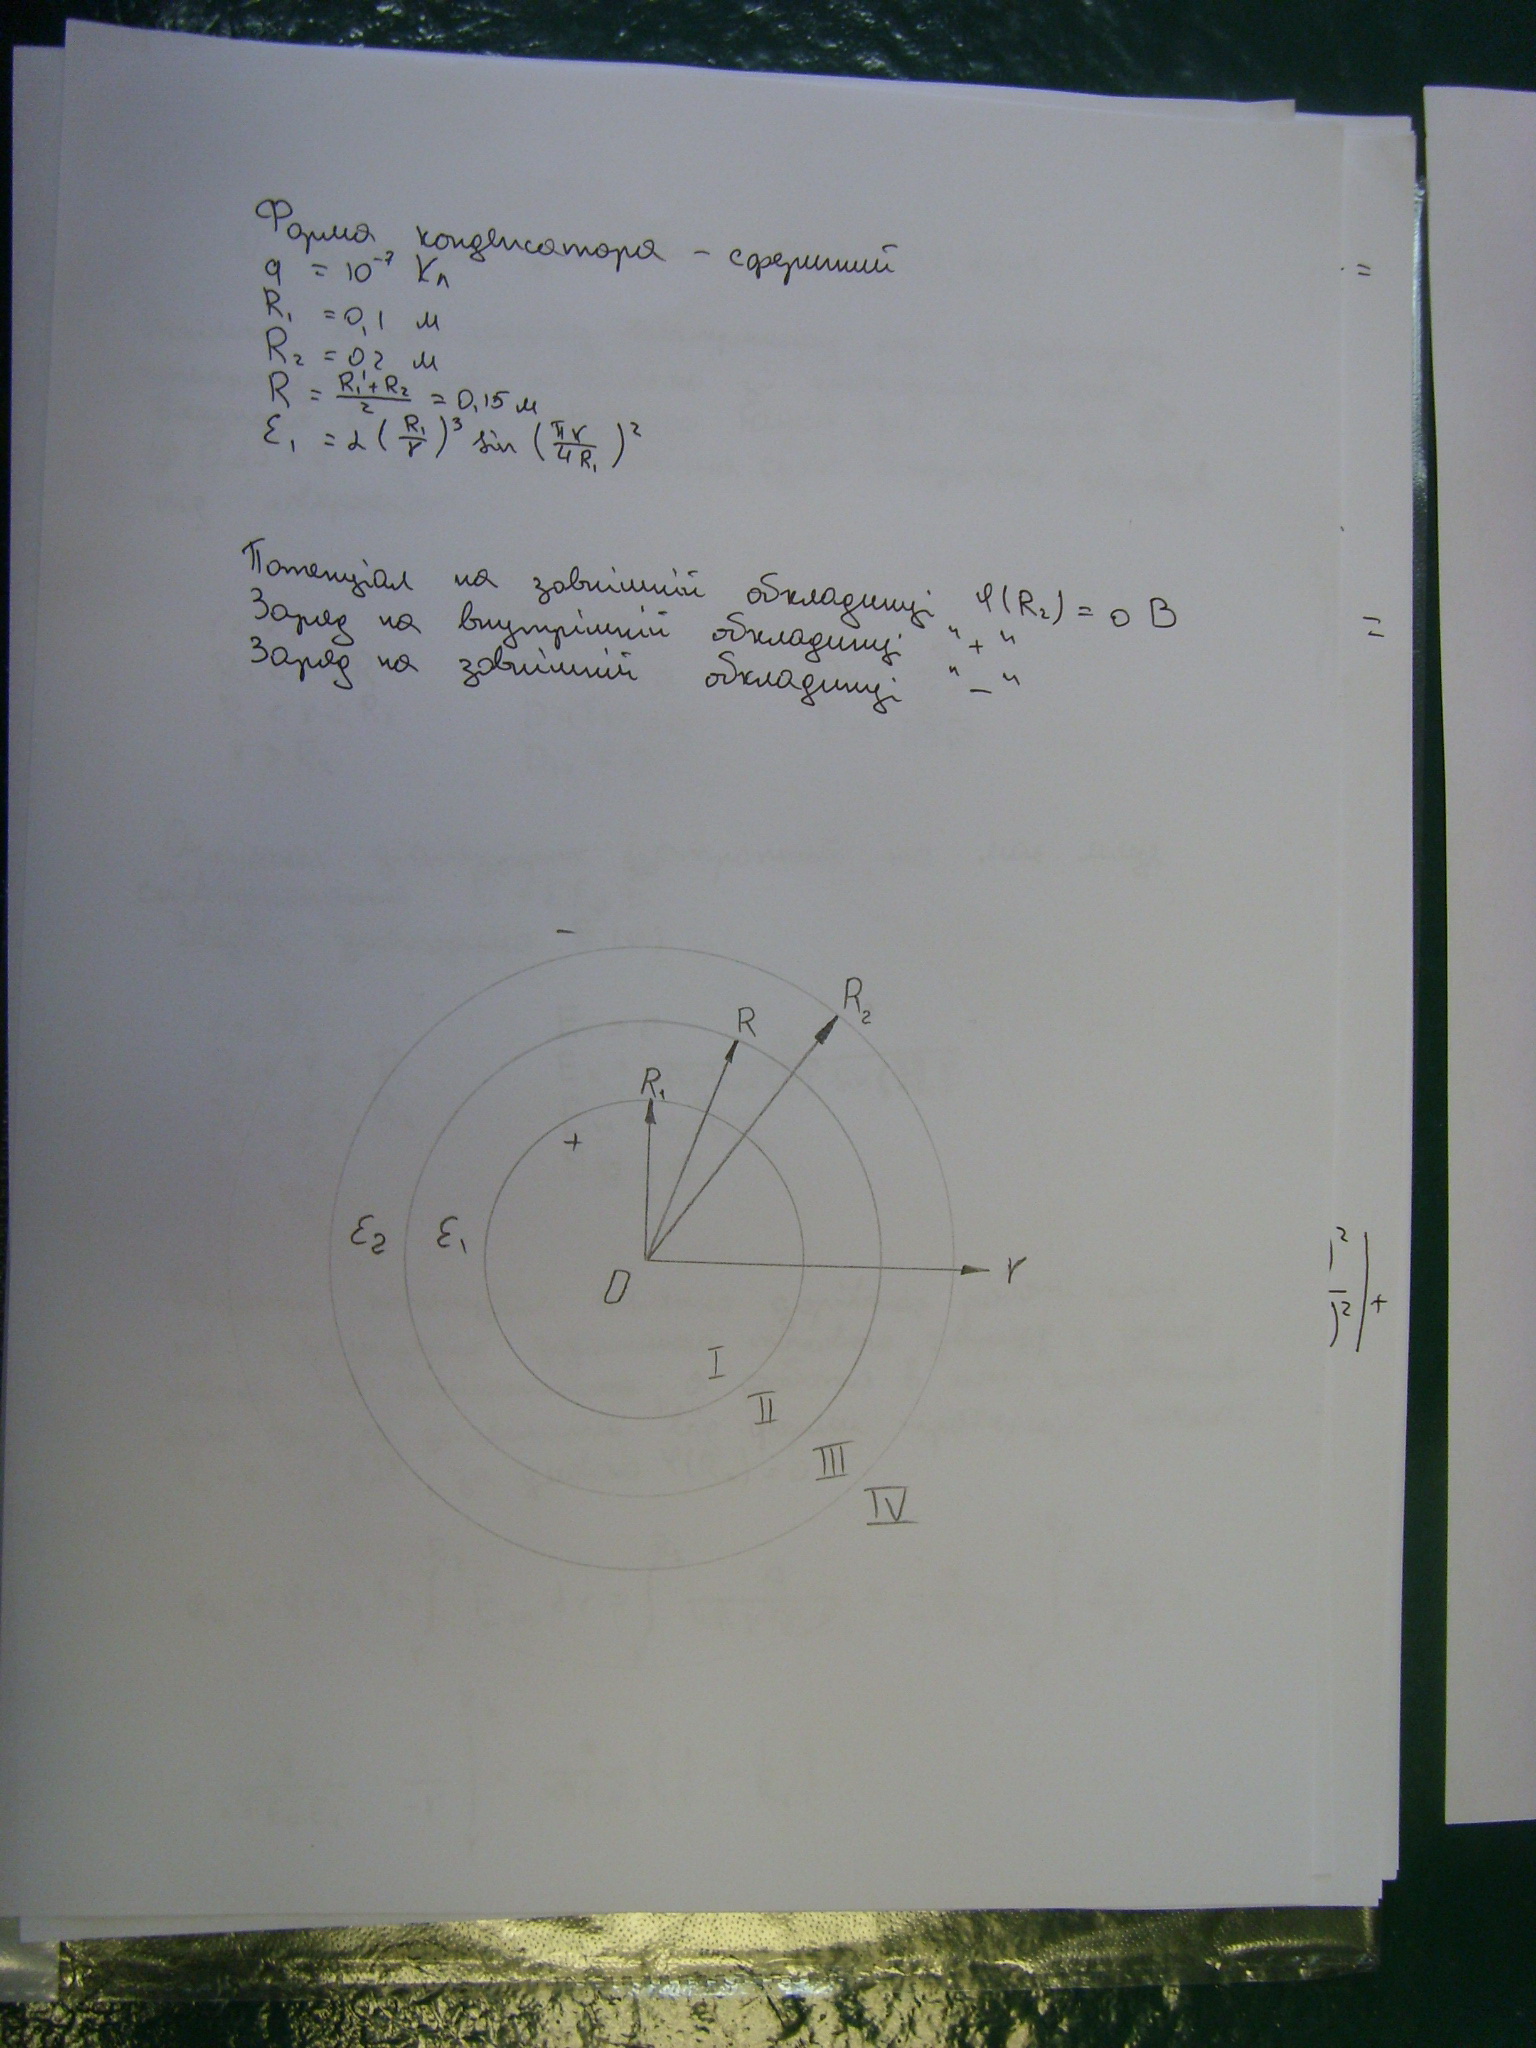 Форма конденсатора - сферичний
q = 10⁻⁷ Кл
R₁ = 0,1 м
R₂ = 0,2 м
R = (R₁+R₂)/2 = 0,15 м
ε₁ = 2 (R₁/r)³ sin (πr/4R₁)²
Потенціал на зовнішній обкладинці φ(R₂) = 0 В
Заряд на внутрішній обкладинці "+"
Заряд на зовнішній обкладинці "−"
=
=
−
R₂
R
R₁
+
ε₂ ε₁
O
r
I
II
III
IV
+